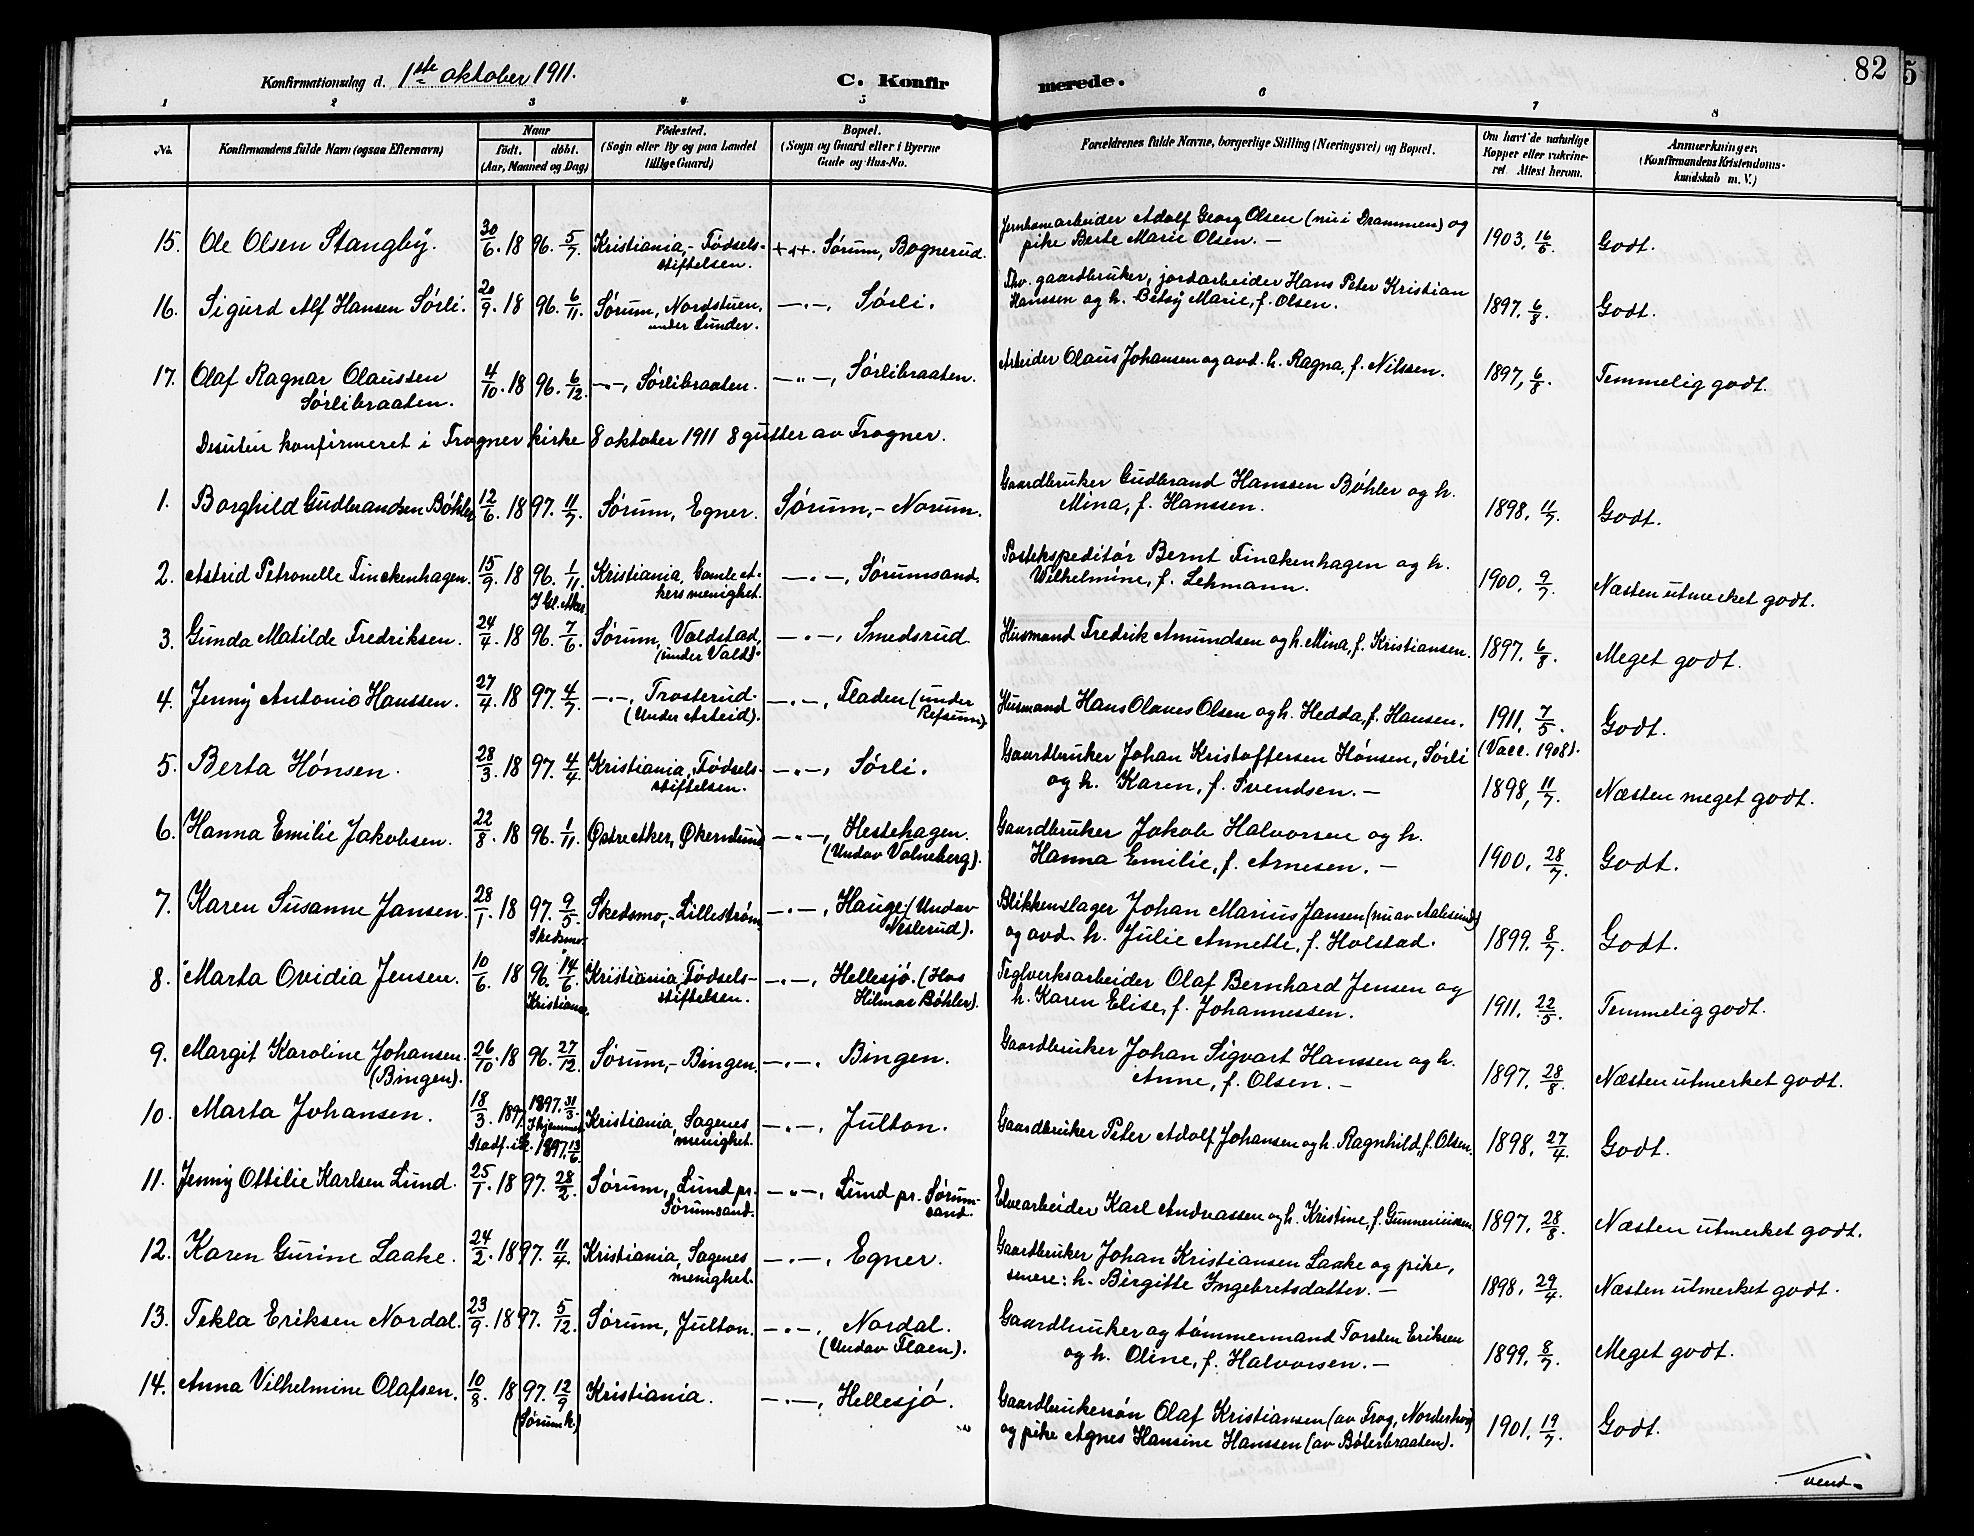 Konfirmationsdag d. 1ste oktober 1911. C. Konfirmerede. 82
1 2 3 4 5 6 7 8
No. Konfirmandens fulde Navn (ogsaa Efternavn) Naar født. døbt. (Aar, Maaned og Dag) Fødested. (Sogn eller By og paa Landet tillige Gaard) Bopæl. (Sogn og Gaard eller i Byerne Gade og Hus-No. Forældrenes fulde Navne, borgerlige Stilling (Næringsvei) og Bopæl. Om havt de naturlige Kopper eller vakcineret Attest herom. Anmærkninger. (Konfirmandens Kristendomskundskab m. V.)
15. Ole Olsen Stangby. 30/6. 1896. 5/7. Kristiania,- Fødselsstiftelsen. +++. Sørum, Bognerud. Jernbanearbeider Adolf Georg Olsen (nu i Drammen) og
pike Berte Marie Olsen. — 1903. 16/6. Godt.
16. Sigurd Alf Hansen Sørli. 20/9. 1896. 6/11. Sørum, Nordstuen, under Lunder. —"—, Sørli. Fhv. gaardbruker, jordarbeider Hans Peter Kristian
Hanssen og h. Betsy Marie, f. Olsen. 1897. 6/8. Godt.
17. Olaf Ragnar Olaussen Sørlibraaten. 4/10. 1896. 6/12. —"—, Sørlibraaten. —"—, Sørlibraaten. Arbeider Olaus Johansen og avd. h. Ragna, f. Nilssen. 1897, 6/8. Temmelig godt.
Desuten konfirmeret i Frogner kirke 8 oktober 1911 8 gutter av Frogner.
1. Borghild Gudbrandsen Bøhler 12/6. 1897. 11/7. Sørum, Egner. Sørum,- Norum. Gaardbruker Gudbrand Hanssen Bøhler og h.
Mina, f. Hanssen. 1898. 11/7. Godt.
2. Astrid Petronelle Finckenhagen. 15/9. 1896. 1/11. I Gl. Aker Kristiania, Gamle Akers menighet. —"—, Sørumsand. Postekspeditør Bernt Finckenhagen og h.
Wilhelmine, f. Lehmann. 1900. 9/7. Næsten utmerket godt.
3. Gunda Matilde Fredriksen. 24/4. 1896. 7/6. Sørum, Valdstad, (under Vald). —"—, Smedsrud. Husmand Fredrik Amundsen og h. Mina, f. Kristiansen. 1897. 6/8. Meget godt.
4. Jenny Antonie Hanssen. 27/4. 1897. 4/7. —"—, Trosterud. (Under Arteid). —"—, Fladen (under Refsum). Husmand Hans Olaves Olsen og h. Hedda, f. Hansen. 1911. 7/5. (Vacc. 1908). Godt.
5. Berta Hønsen. 28/3. 1897. 4/4. Kristiania, Fødselsstiftelsen. —"—, Sørli. Gaardbruker Johan Kristoffersen Hønsen, Sørli
og h. Karen, f. Svendsen. — 1898, 11/7. Næsten meget godt.
6. Hanna Emilie Jakobsen. 22/8. 1896. 1/11. Østre Aker, Økernlund —"—, Hestehagen. (Undav Valneberg). Gaardbruker Jakob Halvorsen og h.
Hanna Emilie, f. Arnesen. — 1900. 28/7. Godt.
7. Karen Susanne Jansen. 28/1. 1897. 9/5. Skedsmo. Skedsmo,- Lillestrøm. —"—, Hauge. (Undav Vesterud). Blikkenslager Johan Marius Jansen (nu av Aalesund)
og avd. h. Julie Annette, f. Holstad. 1899. 8/7. Godt.
8. Marta Ovidia Jensen. 10/6. 1896. 14/6. Kristiania. Kristiania, Fødselsstiftelsen. —"—, Hellesjø. (Hos Hilmar Bøhler). Teglverksarbeider Olaf Bernhard Jensen og
h. Karen Elise, f. Johannessen. 1911. 22/5. Temmelig godt.
9. Margit Karoline Johansen. (Bingen). 26/10. 1896. 27/12. Sørum,- Bingen. —"—, Bingen. Gaardbruker Johan Sigvart Hanssen og h.
Anne, f. Olsen. — 1897. 28/8. Næsten utmerket godt.
10. Marta Johansen. 18/3. 1897. 1897. 31/3. I hjemmet. Stadf. i k. 1897. 13/6. Kristiania, Sagenes menighet. —"—, Julton. Gaardbruker Peter Adolf Johansen og h. Ragnhild, f. Olsen. 1898. 27/4. Godt.
11. Jenny Ottilie Karlsen Lund. 25/1. 1897. 28/2. Sørum, Lund pr. Sørumsand. —"—, Lund pr. Sørumsand. Elvearbeider Karl Andreassen og h. Kristine, f. Gunneriussen. 1897. 28/8. Næsten utmerket godt.
12. Karen Gurine Laake. 24/2. 1897. 11/4. Kristiania, Sagenes menighet. —"—, Egner. Gaardbruker Johan Kristiansen Laake og pike,
senere: h. Birgitte Ingebretsdatter. — 1898. 29/4. Næsten utmerket godt.
13. Tekla Eriksen Nordal. 23/9. 1897. 5/12. Sørum, Julton. —"—, Nordal. (Undav Flaen). Gaardbruker og tømmermand Torsten Eriksen
og h. Oline, f. Halvorsen. — 1899. 8/7. Meget godt.
14. Anna Vilhelmine Olafsen. 10/8. 1897. 12/9. (Sørum k.) Kristiania. —"—, Hellesjø. Gaardbrukersøn Olaf Kristiansen (av Frog, Norderhov)
og pike Agnes Hansine Hanssen (av Bølerbraaten). 1901. 19/7. Godt.
vend.